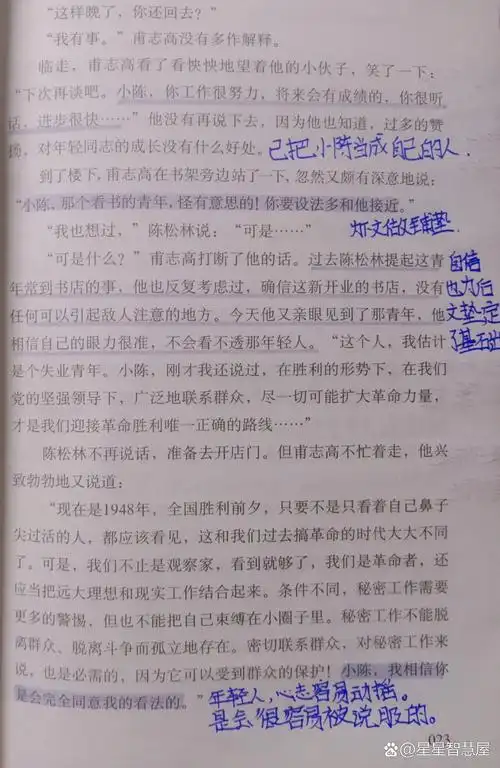 “这样晚了，你还回去？”
“我有事。”甫志高没有多作解释。
临走，甫志高看了看怏怏地望着他的小伙子，笑了一下：
“下次再谈吧。小陈，你工作很努力，将来会有成绩的，你很听
话，进步很快……”他没有再说下去，因为他也知道，过多的赞
扬，对年轻同志的成长没有什么好处。已把小陈当成自己的人.
到了楼下，甫志高在书架旁边站了一下，忽然又颇有深意地说：
“小陈，那个看书的青年，怪有意思的！你要设法多和他接近。”
“我也想过，”陈松林说：“可是……”
“可是什么？”甫志高打断了他的话。过去陈松林提起这青
年常到书店的事，他也反复考虑过，确信这新开业的书店，没有
任何可以引起敌人注意的地方。今天他又亲眼见到了那青年，他
相信自己的眼力很准，不会看不透那年轻人。“这个人，我估计
是个失业青年。小陈，刚才我还说过，在胜利的形势下，在我们
党的坚强领导下，广泛地联系群众，尽一切可能扩大革命力量，
才是我们迎接革命胜利唯一正确的路线……”
自信
也为后
文垫定
了基石
陈松林不再说话，准备去开店门。但甫志高不忙着走，他兴
致勃勃地又说道：
“现在是1948年，全国胜利前夕，只要不是只看着自己鼻子
尖过活的人，都应该看见，这和我们过去搞革命的时代大大不同
了。可是，我们不止是观察家，看到就够了，我们是革命者，还
应当把远大理想和现实工作结合起来。条件不同，秘密工作需要
更多的警惕，但也不能把自己束缚在小圈子里。秘密工作不能脱
离群众、脱离斗争而孤立地存在。密切联系群众，对秘密工作来
说，也是必需的，因为它可以受到群众的保护！小陈，我相信你
是会完全同意我的看法的。”
年轻人，心志容易动摇。
是会很容易被说服的。
023
@星星智慧屋